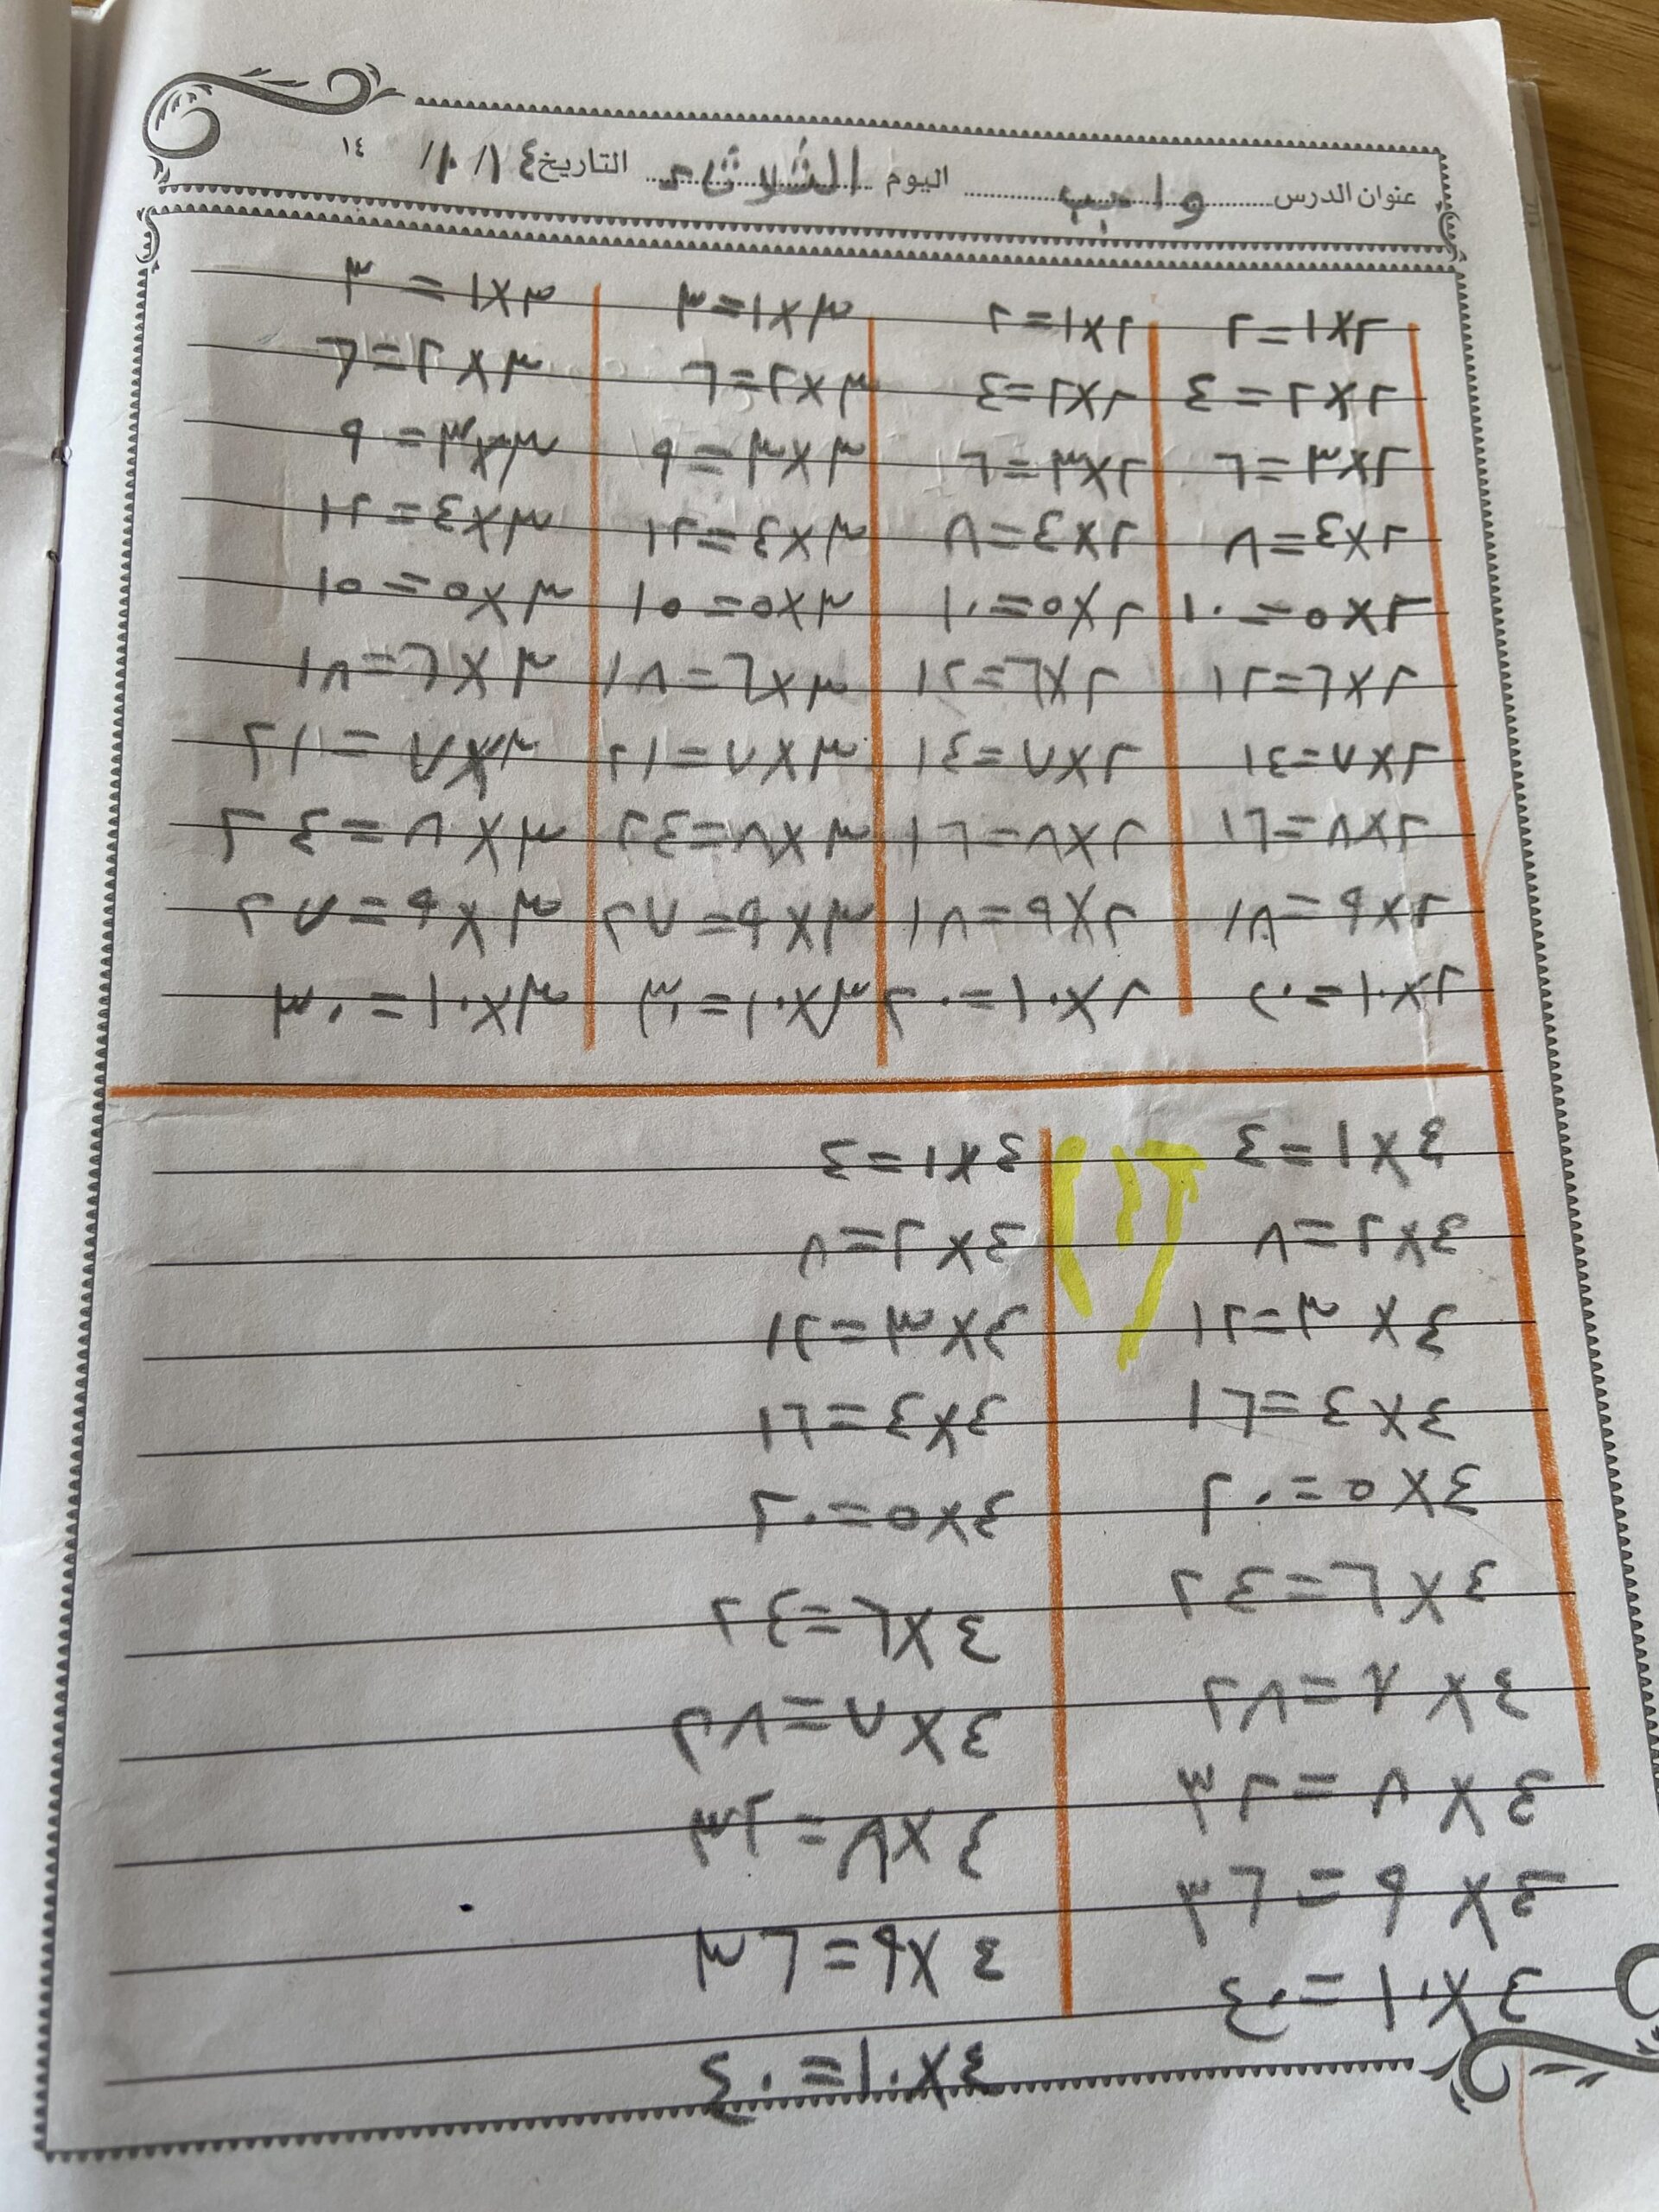 عنوان الدرس واجب اليوم الثلاثاء التاريخ ١٤/١٠/ ١٤
٢×١=٢ ٢×١=٢ ٣×١=٣ ٣×١=٣
٢×٢=٤ ٢×٢=٤ ٣×٢=٦ ٣×٢=٦
٢×٣=٦ ٢×٣=٦ ٣×٣=٩ ٣×٣=٩
٢×٤=٨ ٢×٤=٨ ٣×٤=١٢ ٣×٤=١٢
٢×٥=١٠ ٢×٥=١٠ ٣×٥=١٥ ٣×٥=١٥
٢×٦=١٢ ٢×٦=١٢ ٣×٦=١٨ ٣×٦=١٨
٢×٧=١٤ ٢×٧=١٤ ٣×٧=٢١ ٣×٧=٢١
٢×٨=١٦ ٢×٨=١٦ ٣×٨=٢٤ ٣×٨=٢٤
٢×٩=١٨ ٢×٩=١٨ ٣×٩=٢٧ ٣×٩=٢٧
٢×١٠=٢٠ ٢×١٠=٢٠ ٣×١٠=٣٠ ٣×١٠=٣٠
٤×١=٤ ٤×١=٤
٤×٢=٨ ٤×٢=٨
٤×٣=١٢ ٤×٣=١٢
٤×٤=١٦ ٤×٤=١٦
٤×٥=٢٠ ٤×٥=٢٠
٤×٦=٢٤ ٤×٦=٢٤
٤×٧=٢٨ ٤×٧=٢٨
٤×٨=٣٢ ٤×٨=٣٢
٤×٩=٣٦ ٤×٩=٣٦
٤×١٠=٤٠ ٤×١٠=٤٠